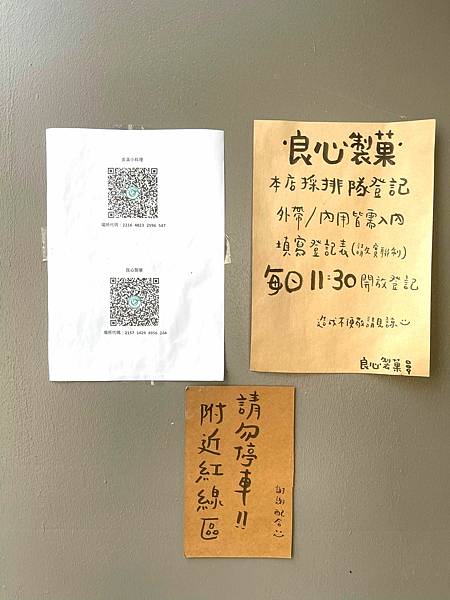 良心製菓
場所代碼：2157 1429 4956 244
·良心製菓·
本店採排隊登記
外帶/內用皆需入內
填寫登記表
每日11:30開放登記
造成不便敬請見諒
良心製菓
請勿停車!!
附近紅線區
謝謝配合